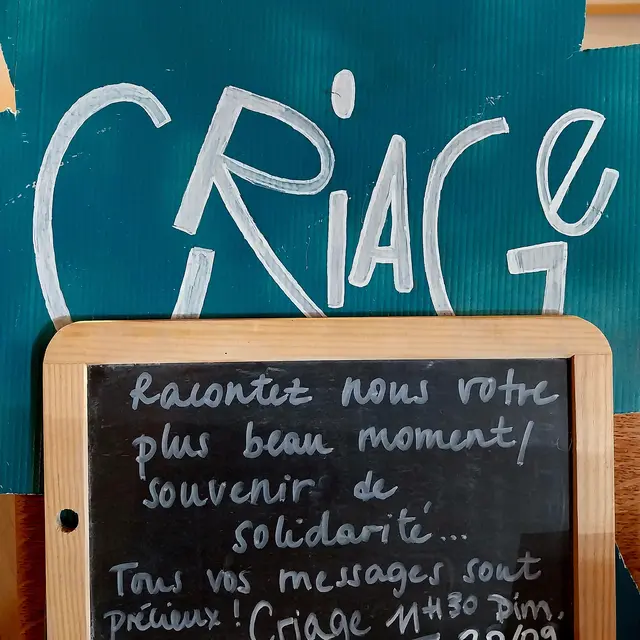 CRiAGe
Racontez nous votre
plus beau moment/
souvenir de
solidarité...
Tous vos messages sont
précieux ! Criage 11H30 Dim.